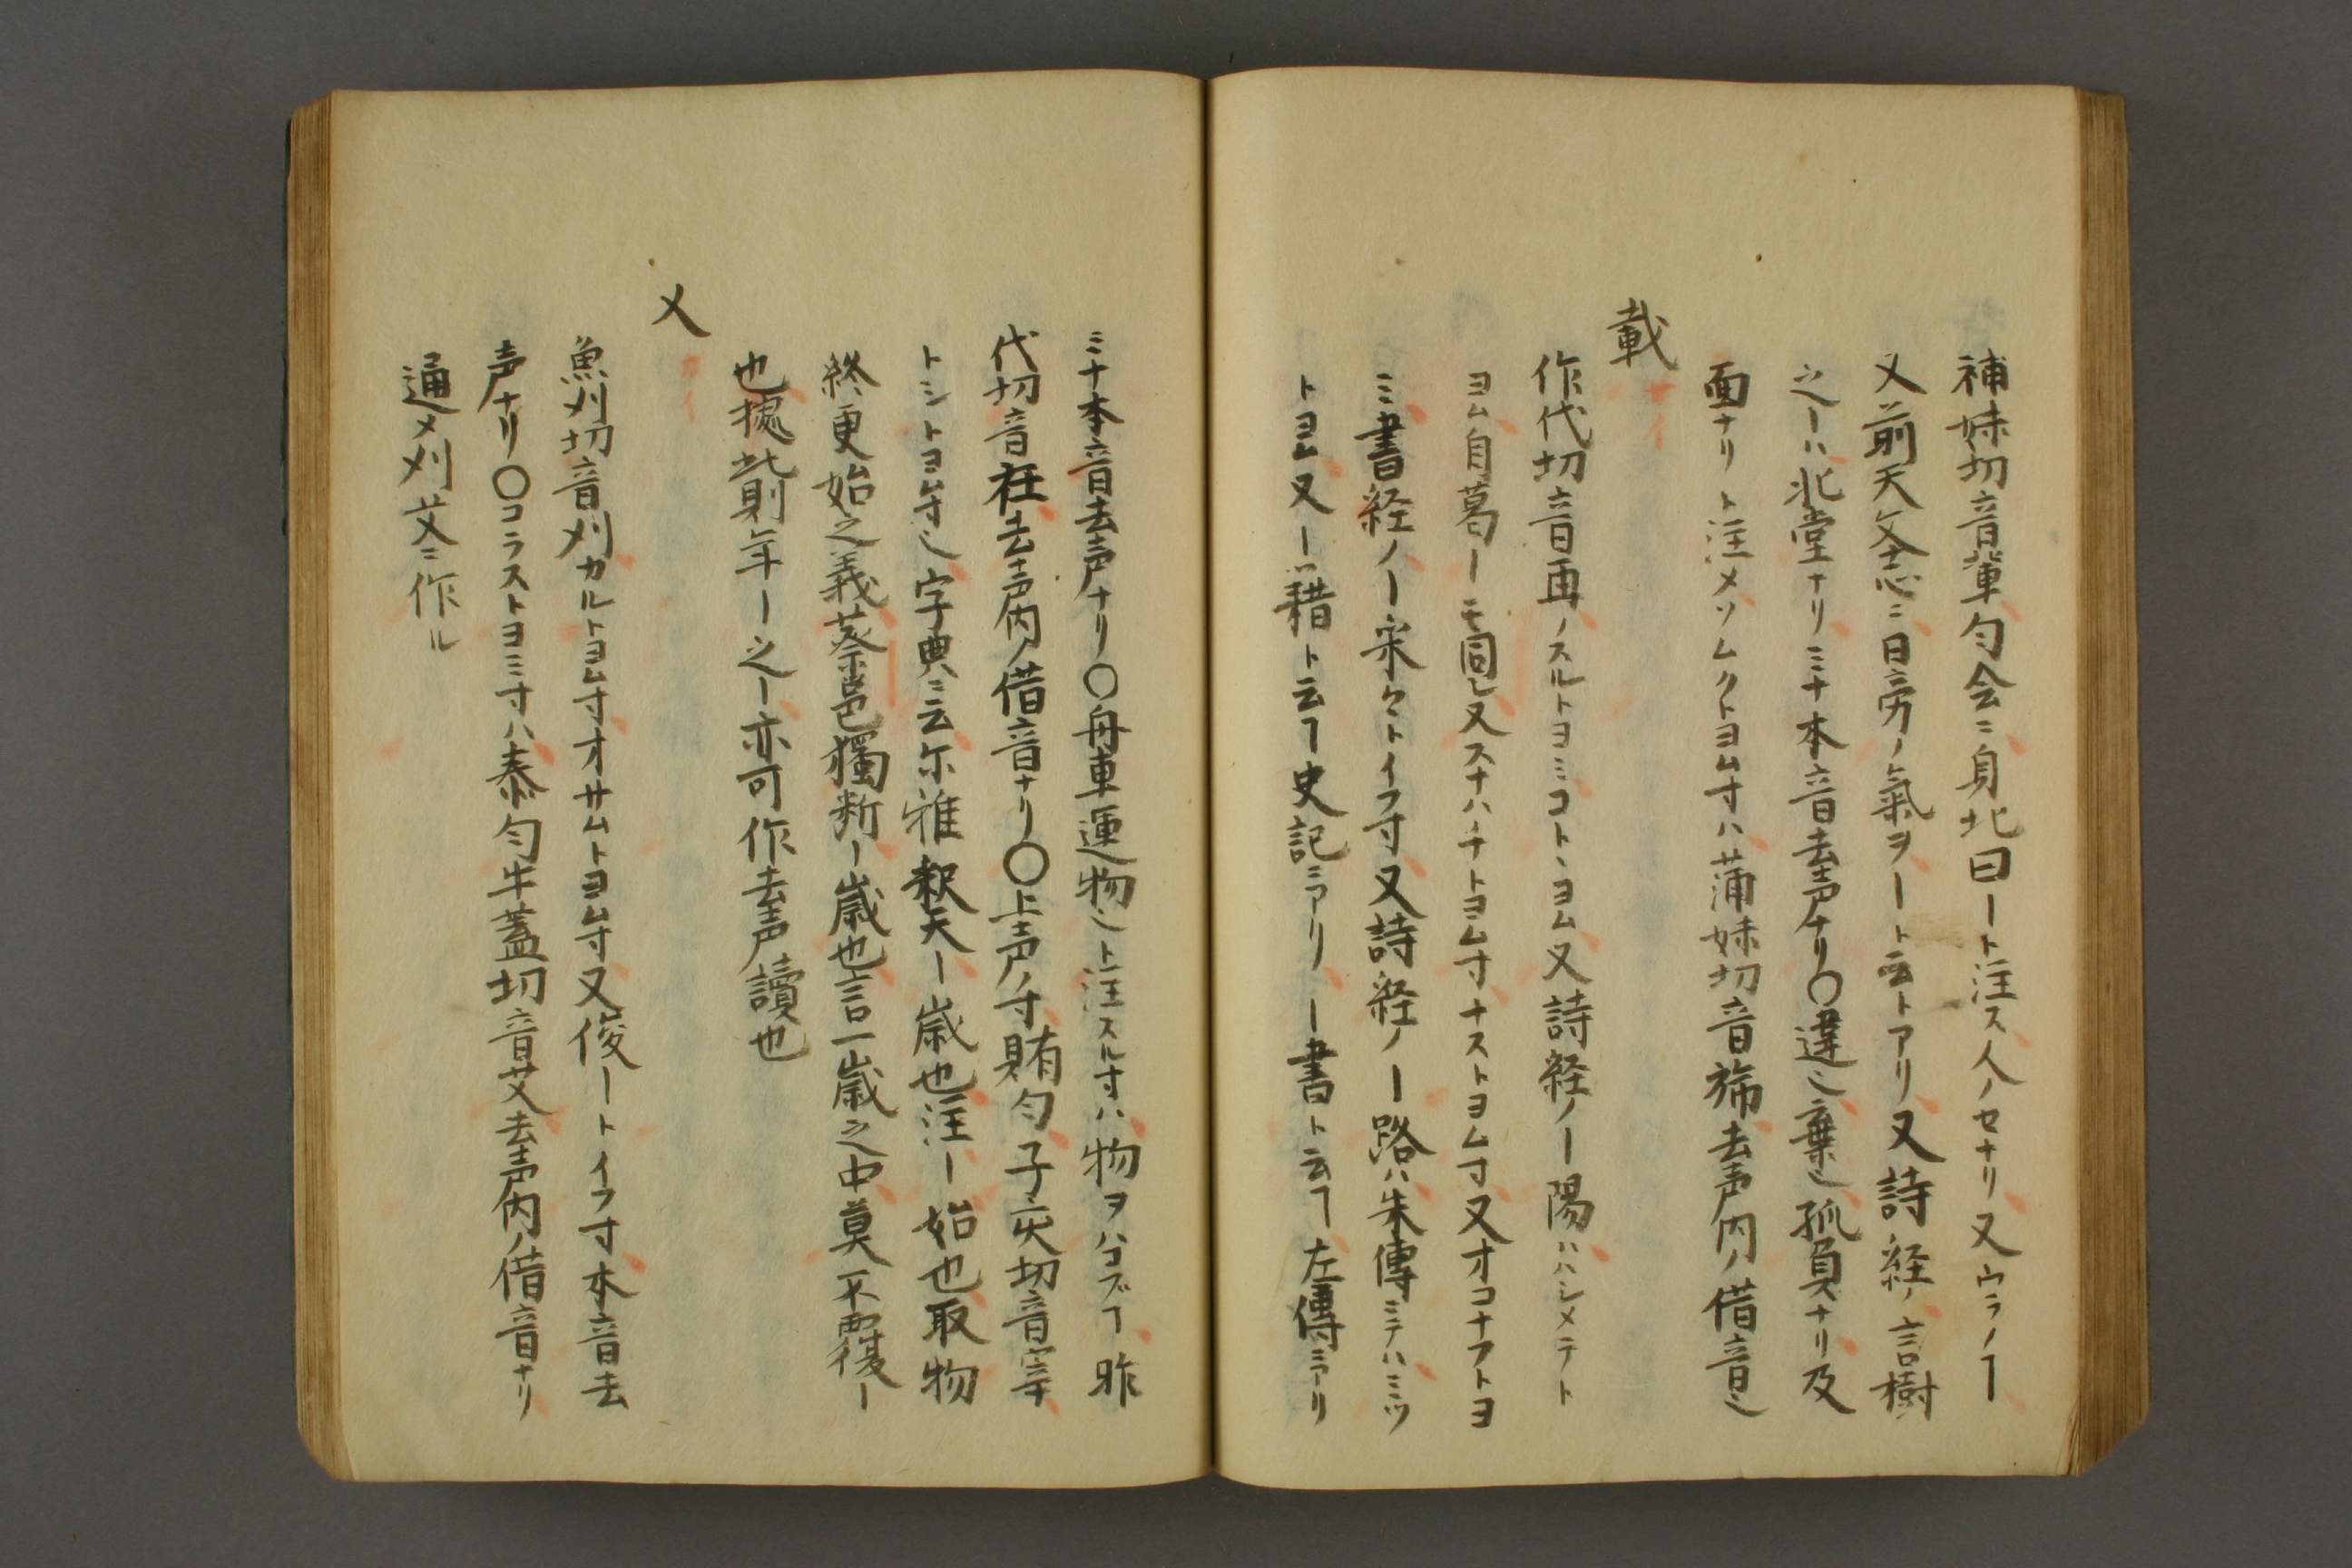 補妹切音輩匀会ニ身北曰ート注ス人ノセナリ又ウラノヿ
又前天文志ニ日旁ノ氣ヲート云トアリ又詩経ノ言樹
之ーハ北堂ナリミナ本音去声ナリ〇違也棄也孤負ナリ及
面ナリト注メソムクトヨム寸ハ蒲妹切音旆去声内ノ借音也
載
サイ
作代切音再ノスルトヨミコトヽヨム又詩経ノー陽ハハシメテト
ヨム自葛ーモ同シ又スナハチトヨム寸ナストヨム寸又オコナフトヨ
ミ書経ノー采ケトイフ寸又詩経ノー路ハ朱傳ミテハミツ
トヨム又ー籍ト云ヿ史記ニアリー書ト云ヿ左傳ニアリ
ミナ本音去声ナリ〇舟車運物也ト注スル寸ハ物ヲハコブヿ昨
代切音在去声内ノ借音ナリ〇上声ノ寸賄匀子亥切音宰
トシトヨム寸也字典ニ云尓雅釈天ー歳也注ー始也取物
終更始之義蔡邕獨断ー歳也言一歳之中莫不覆ー
也據此則年ー之ー亦可作去声讀也
乂
カイ
魚刈切音刈カルトヨム寸オサムトヨム寸又俊ートイフ寸本音去
声ナリ〇コラストヨミ寸ハ泰匀牛蓋切音艾去声内ノ借音ナリ
通メ刈艾ニ作ル